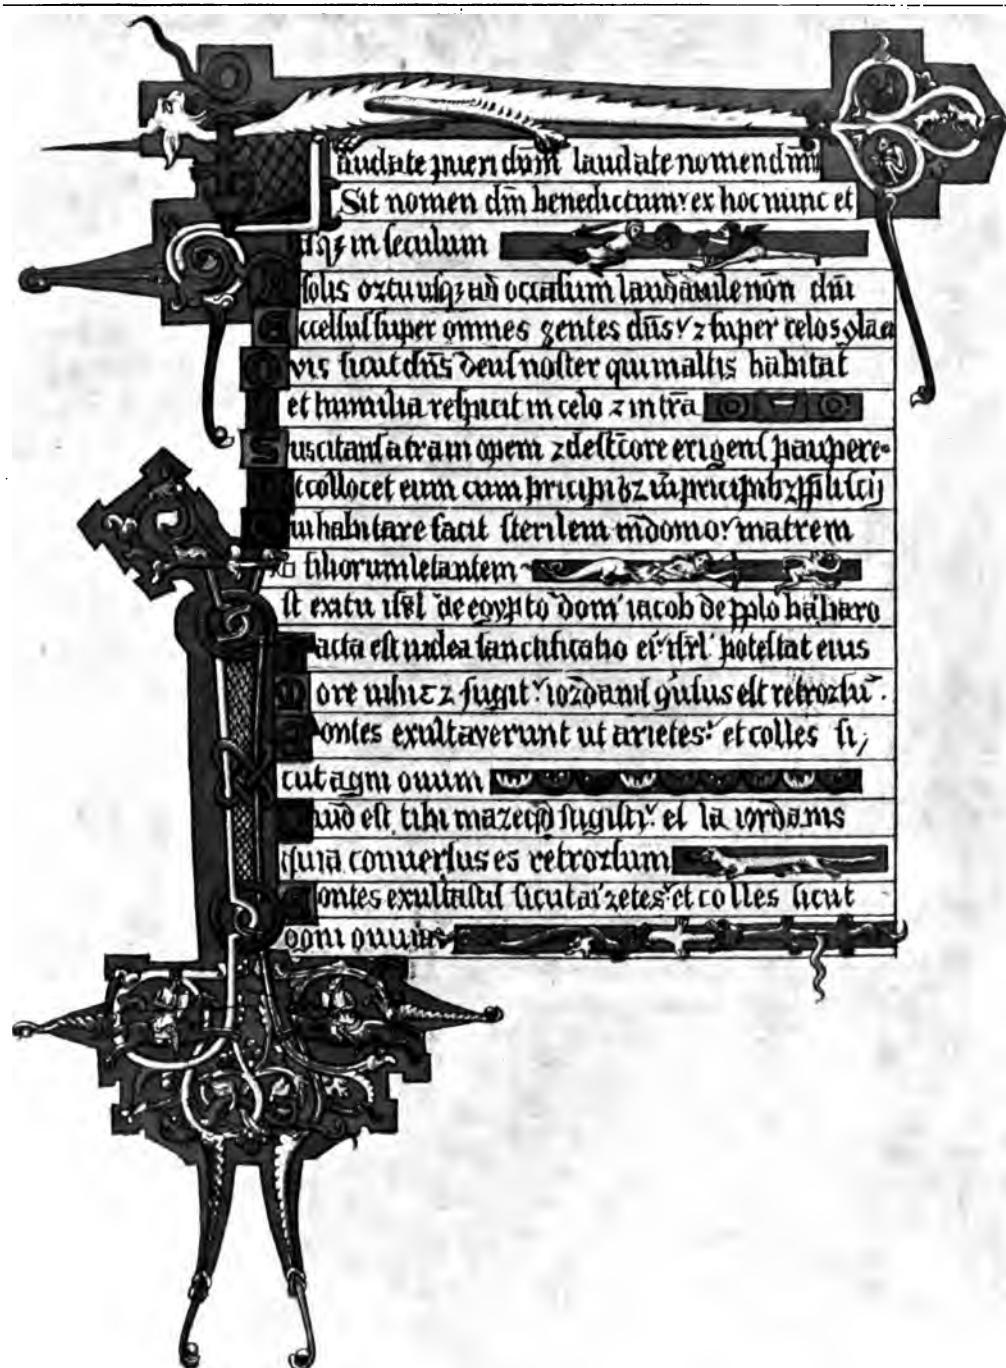 Laudate pueri dūm laudate nomen dm̄
Sit nomen dm̄ benedictum ex hoc nunc et
usqꝫ in seculum
A solis ortu usqꝫ ad occasum laudabile nōn dm̄
Excelsus super omnes gentes dn̄s ⁊ super celos gla ei
Quis sicut dn̄s deus noster qui in altis habitat
et humilia respicit in celo ⁊ in tr̄a
Suscitans a tr̄a inopem ⁊ de st̄core erigens paupere
Ut collocet eum cum pricipibꝫ cū pricipibꝫ ppli
Qui habitare facit sterilem in domo matrem
filiorum letantem
In exitu isr̄l de egypto dom iacob de pplo barbaro
Facta est iudea sanctificatio ei isr̄l potestas eius
fugit iordanis ūsus est retrorsū
Montes exultaverunt ut arietes et colles si
cut agni ovium
Quid est tibi mare qd fugisti et iordanis
quia conversus es retrorsum
Montes exultastis sicut arietes et colles sicut
agni ovium